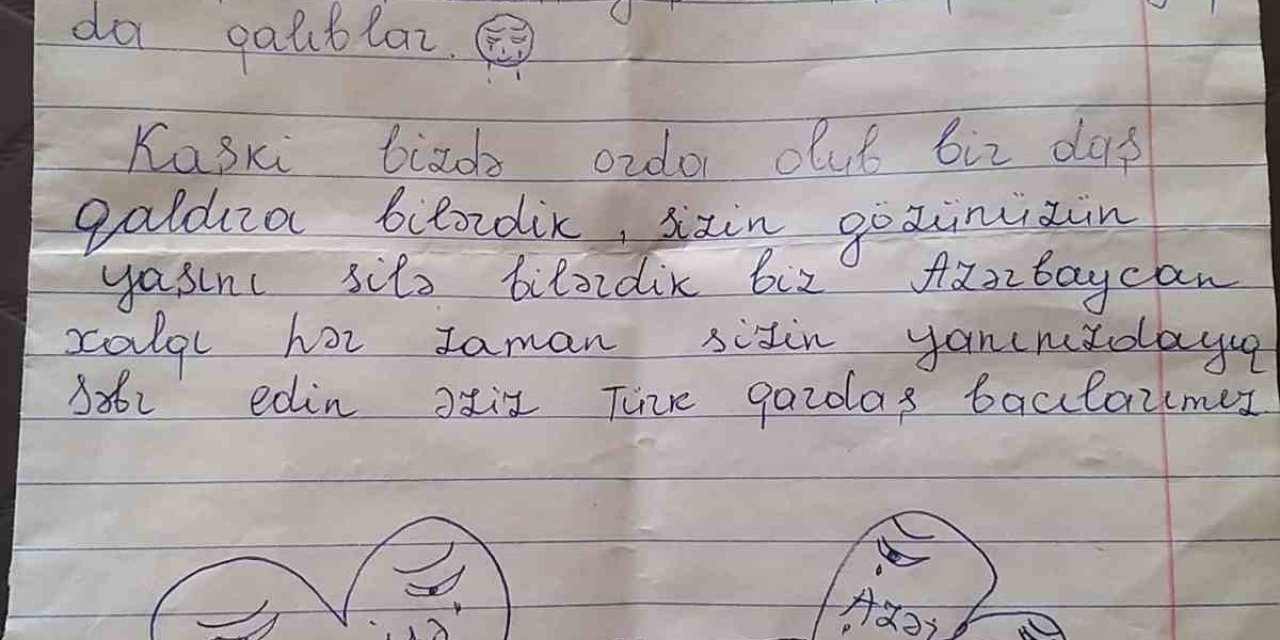 da qalıblar.
Kaşki bizdə orda olub bir daş
qaldıra bilərdik, sizin gözünüzün
yaşını silə bilərdik biz Azərbaycan
xalqı hər zaman sizin yanınızdayıq
Səbr edin əziz Türk qardaş bacılarımız
Azər